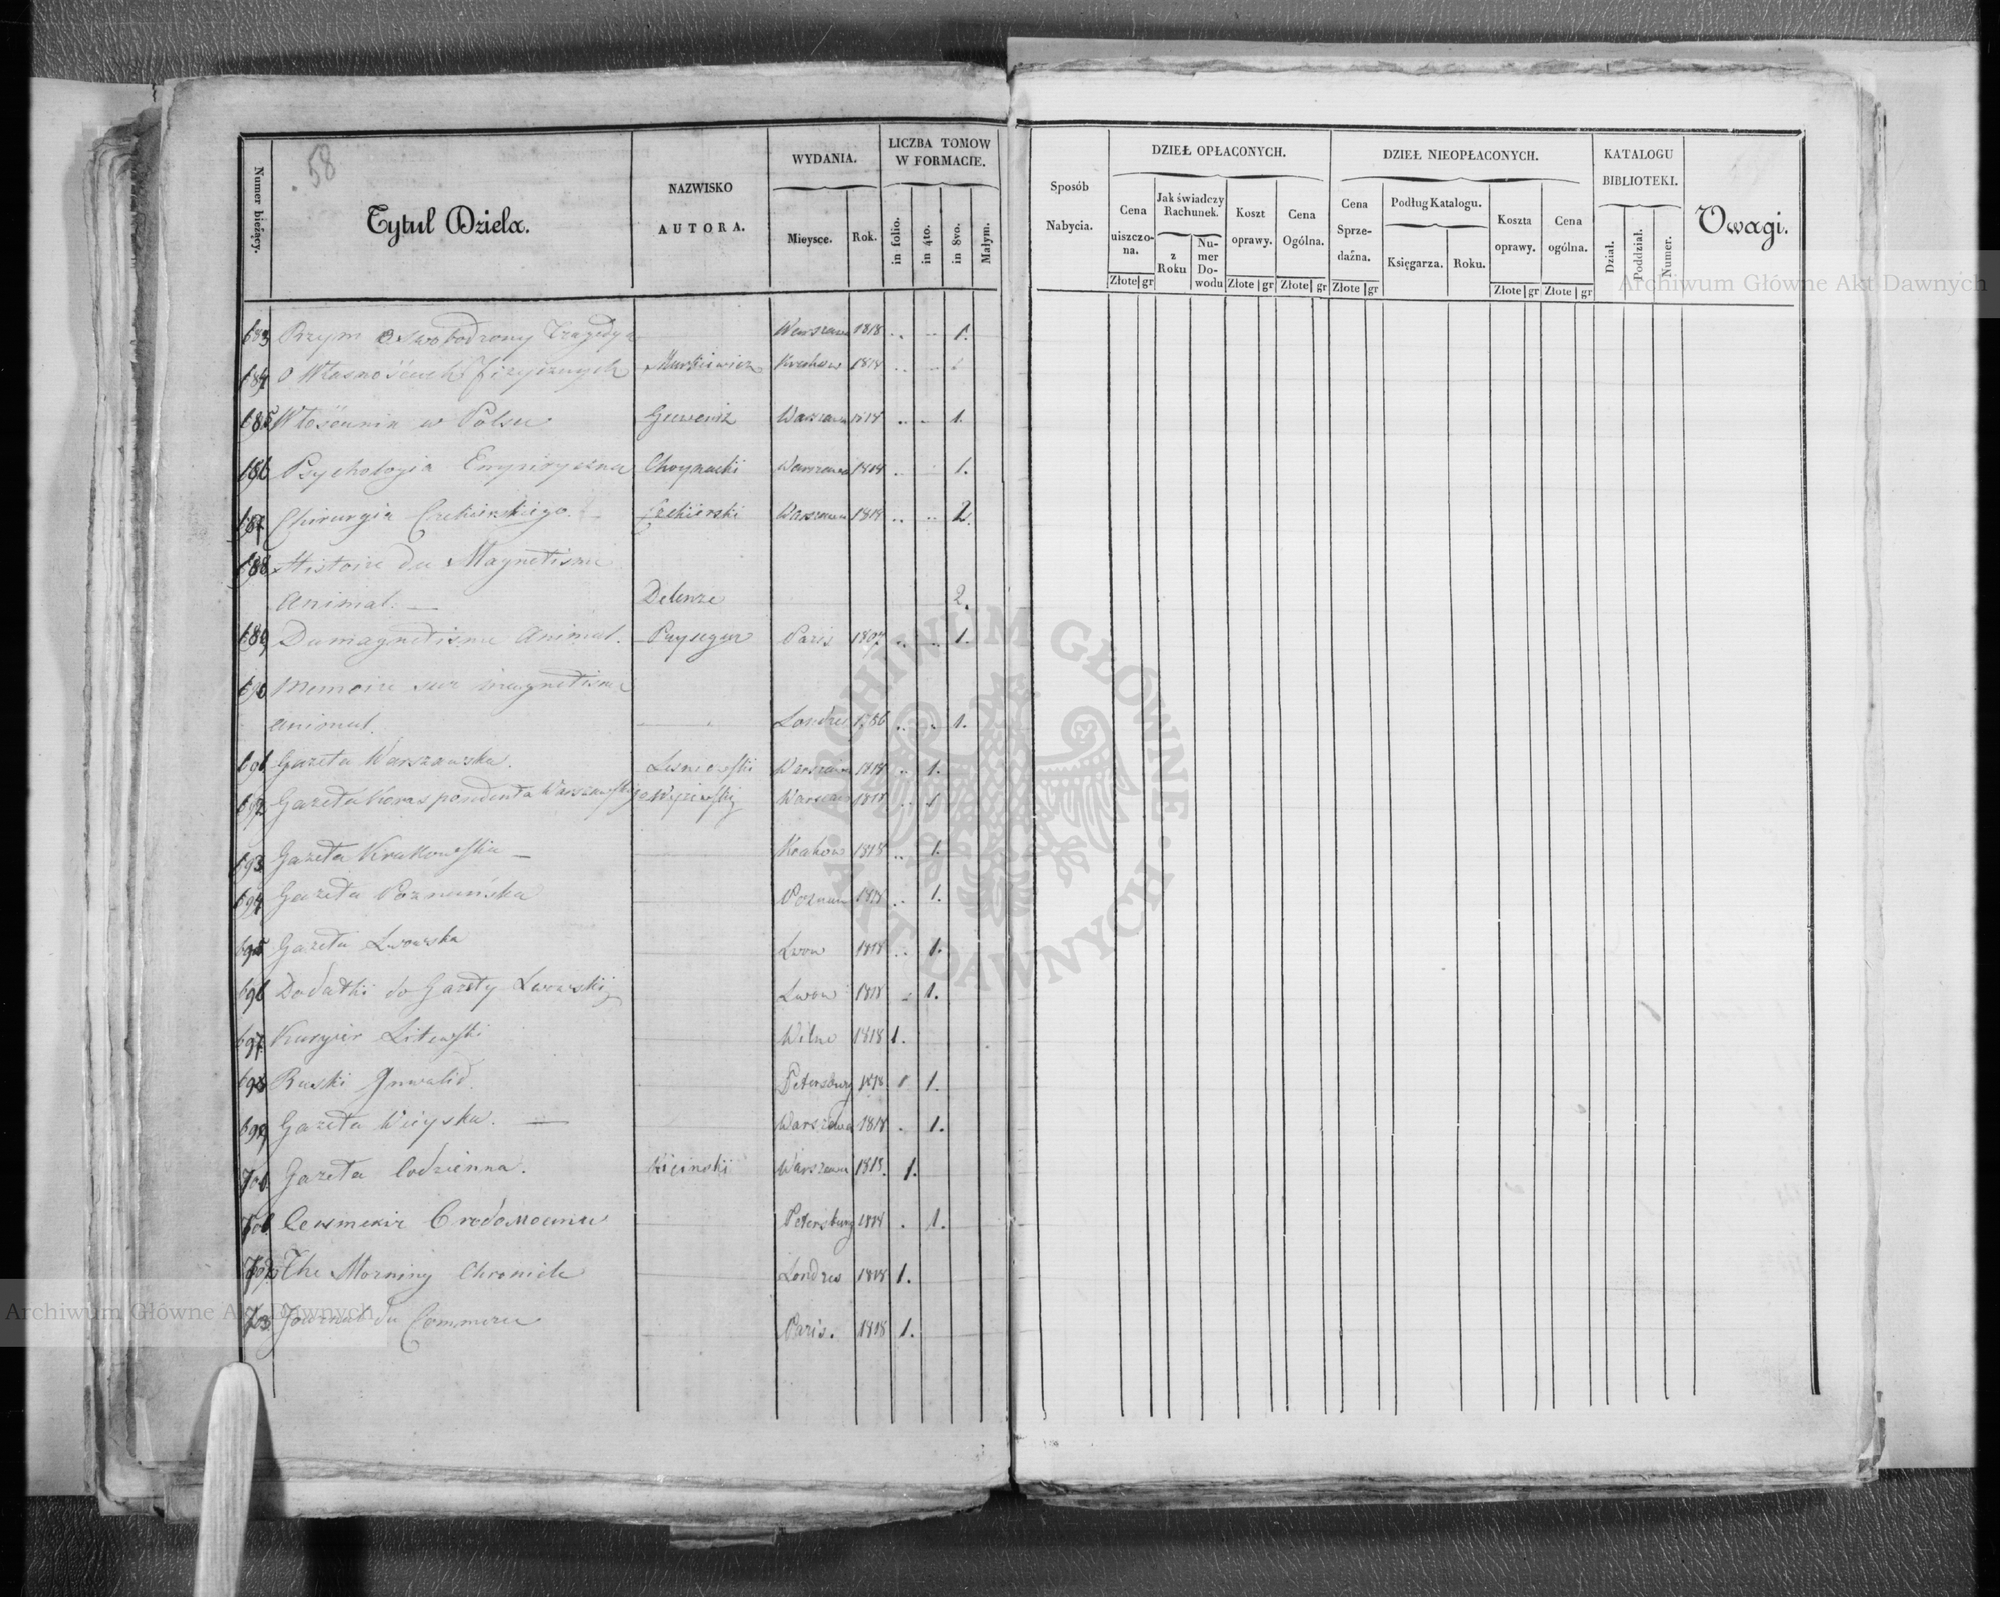 58
Numer bieżący.
Tytuł Dzieła.
NAZWISKO
AUTORA.
WYDANIA.
Mieysce.
Rok.
LICZBA TOMOW
W FORMACIE.
in folio.
in 4to.
in 8vo.
Małym.
683 Rzym oswobodzony Tragedya Warszawa 1818 .. .. 1.
684 o Własnościach fizycznych Markiewicz Krakow 1818 .. ..
685 Włościanin w Polsce Warszawa .. .. 1.
686 Psychologia Empiryczna Choynacki Warszawa 1818 . . 1.
687 Chirurgia Czekierskiego. Czekierski Warszawa 1818 .. .. 2.
688 Histoire du Magnetisme
Animal. — Deleuze 2.
689 Du magnetisme Animal. Puysegur Paris 1807 .. .. 1.
690 Memoire sur magnetisme
animal. Londres 1786 .. .. 1.
691 Gazeta Warszawska. Lesniewski Warszawa 1818 .. 1.
692 Gazeta Korrespondenta Warszawskiego Wyżewski Warszawa 1818 .. 1
693 Gazeta Krakowska — Krakow 1818 .. 1.
694 Gazeta Poznańska Poznan 1818 .. 1.
695 Gazeta Lwowska Lwow 1818 .. 1.
696 Dodatki do Gazety Lwowskiej Lwow 1818 .. 1.
697 Kuryier Litewski Wilno 1818 1.
698 Ruski Inwalid. Petersburg 1818 1.
699 Gazeta Wieyska. — Warszawa 1818 . 1.
700 Gazeta Codzienna. Kicinski Warszawa 1818. 1.
701 Petersburg . 1.
702 The Morning Chronicle Londres 1818 1.
703 Journal du Commerce Paris. 1818 1.
Sposób
Nabycia.
DZIEŁ OPŁACONYCH.
Cena
uiszczo-
na.
Złote gr
Jak świadczy
Rachunek.
z
Roku
Nu-
mer
Do-
wodu
Koszt
oprawy.
Złote gr
Cena
Ogólna.
Złote gr
DZIEŁ NIEOPŁACONYCH.
Cena
Sprze-
daźna.
Złote gr
Podług Katalogu.
Księgarza.
Roku.
Koszta
oprawy.
Złote gr
Cena
ogólna.
Złote gr
KATALOGU
BIBLIOTEKI.
Dział.
Poddział.
Numer.
Uwagi.
Archiwum Główne Akt Dawnych
ARCHIWUM GŁÓWNE · AKT DAWNYCH ·
Archiwum Główne Akt Dawnych